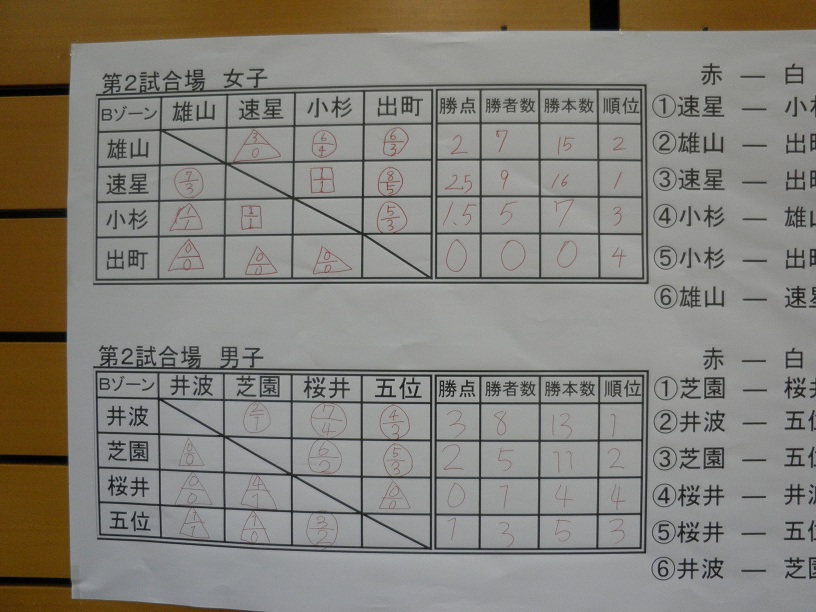 第2試合場 女子
赤 ― 白
Bゾーン 雄山 速星 小杉 出町 勝点 勝者数 勝本数 順位
①速星 ― 小
雄山 3/0 6/4 6/3 2 7 15 2
②雄山 ― 出町
速星 7/3 1/1 8/5 2.5 9 16 1
③速星 ― 出町
小杉 1/1 1/1 5/3 1.5 5 7 3
④小杉 ― 雄山
出町 0/0 0/0 0/0 0 0 0 4
⑤小杉 ― 出町
⑥雄山 ― 速星
第2試合場 男子
赤 ― 白
Bゾーン 井波 芝園 桜井 五位 勝点 勝者数 勝本数 順位
①芝園 ― 桜
井波 2/1 7/4 4/3 3 8 13 1
②井波 ― 五位
芝園 0/0 6/2 5/3 2 5 11 2
③芝園 ― 五位
桜井 0/0 4/1 0/0 0 1 4 4
④桜井 ― 井波
五位 1/1 1/0 3/2 1 3 5 3
⑤桜井 ― 五位
⑥井波 ― 芝園